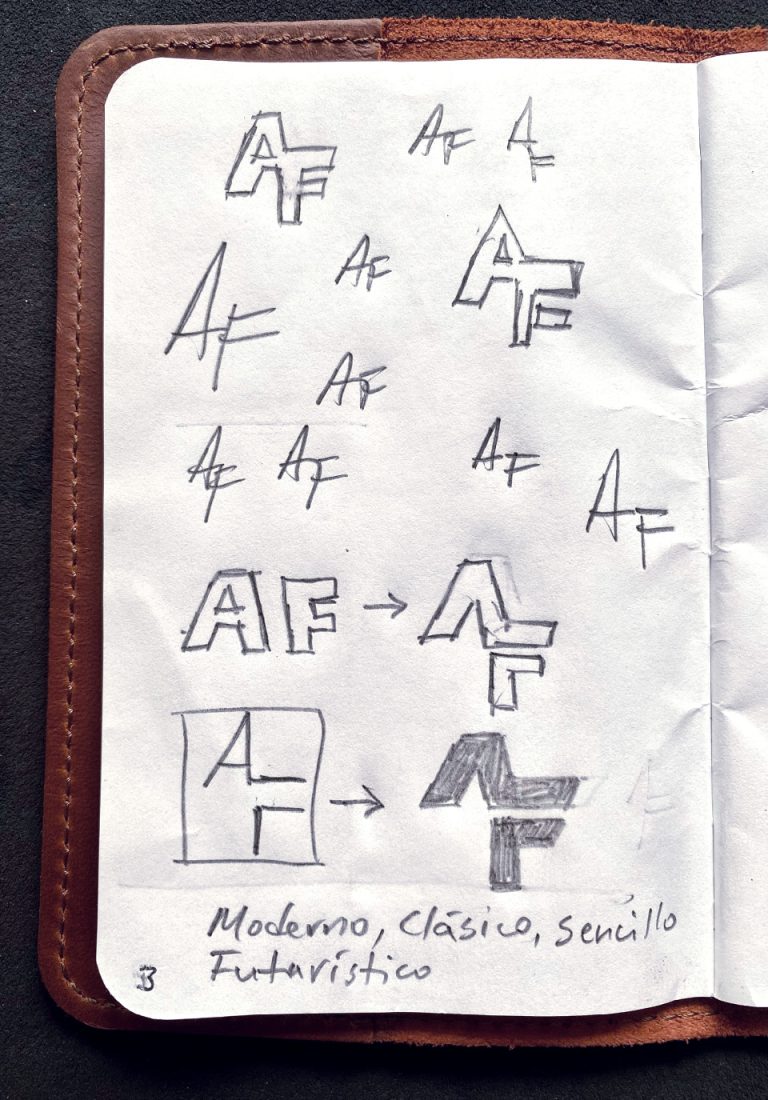 AF AF AF
AF AF AF
AF
AF AF AF AF
AF → AF
AF → AF
Moderno, Clásico, Sencillo
Futurístico
3